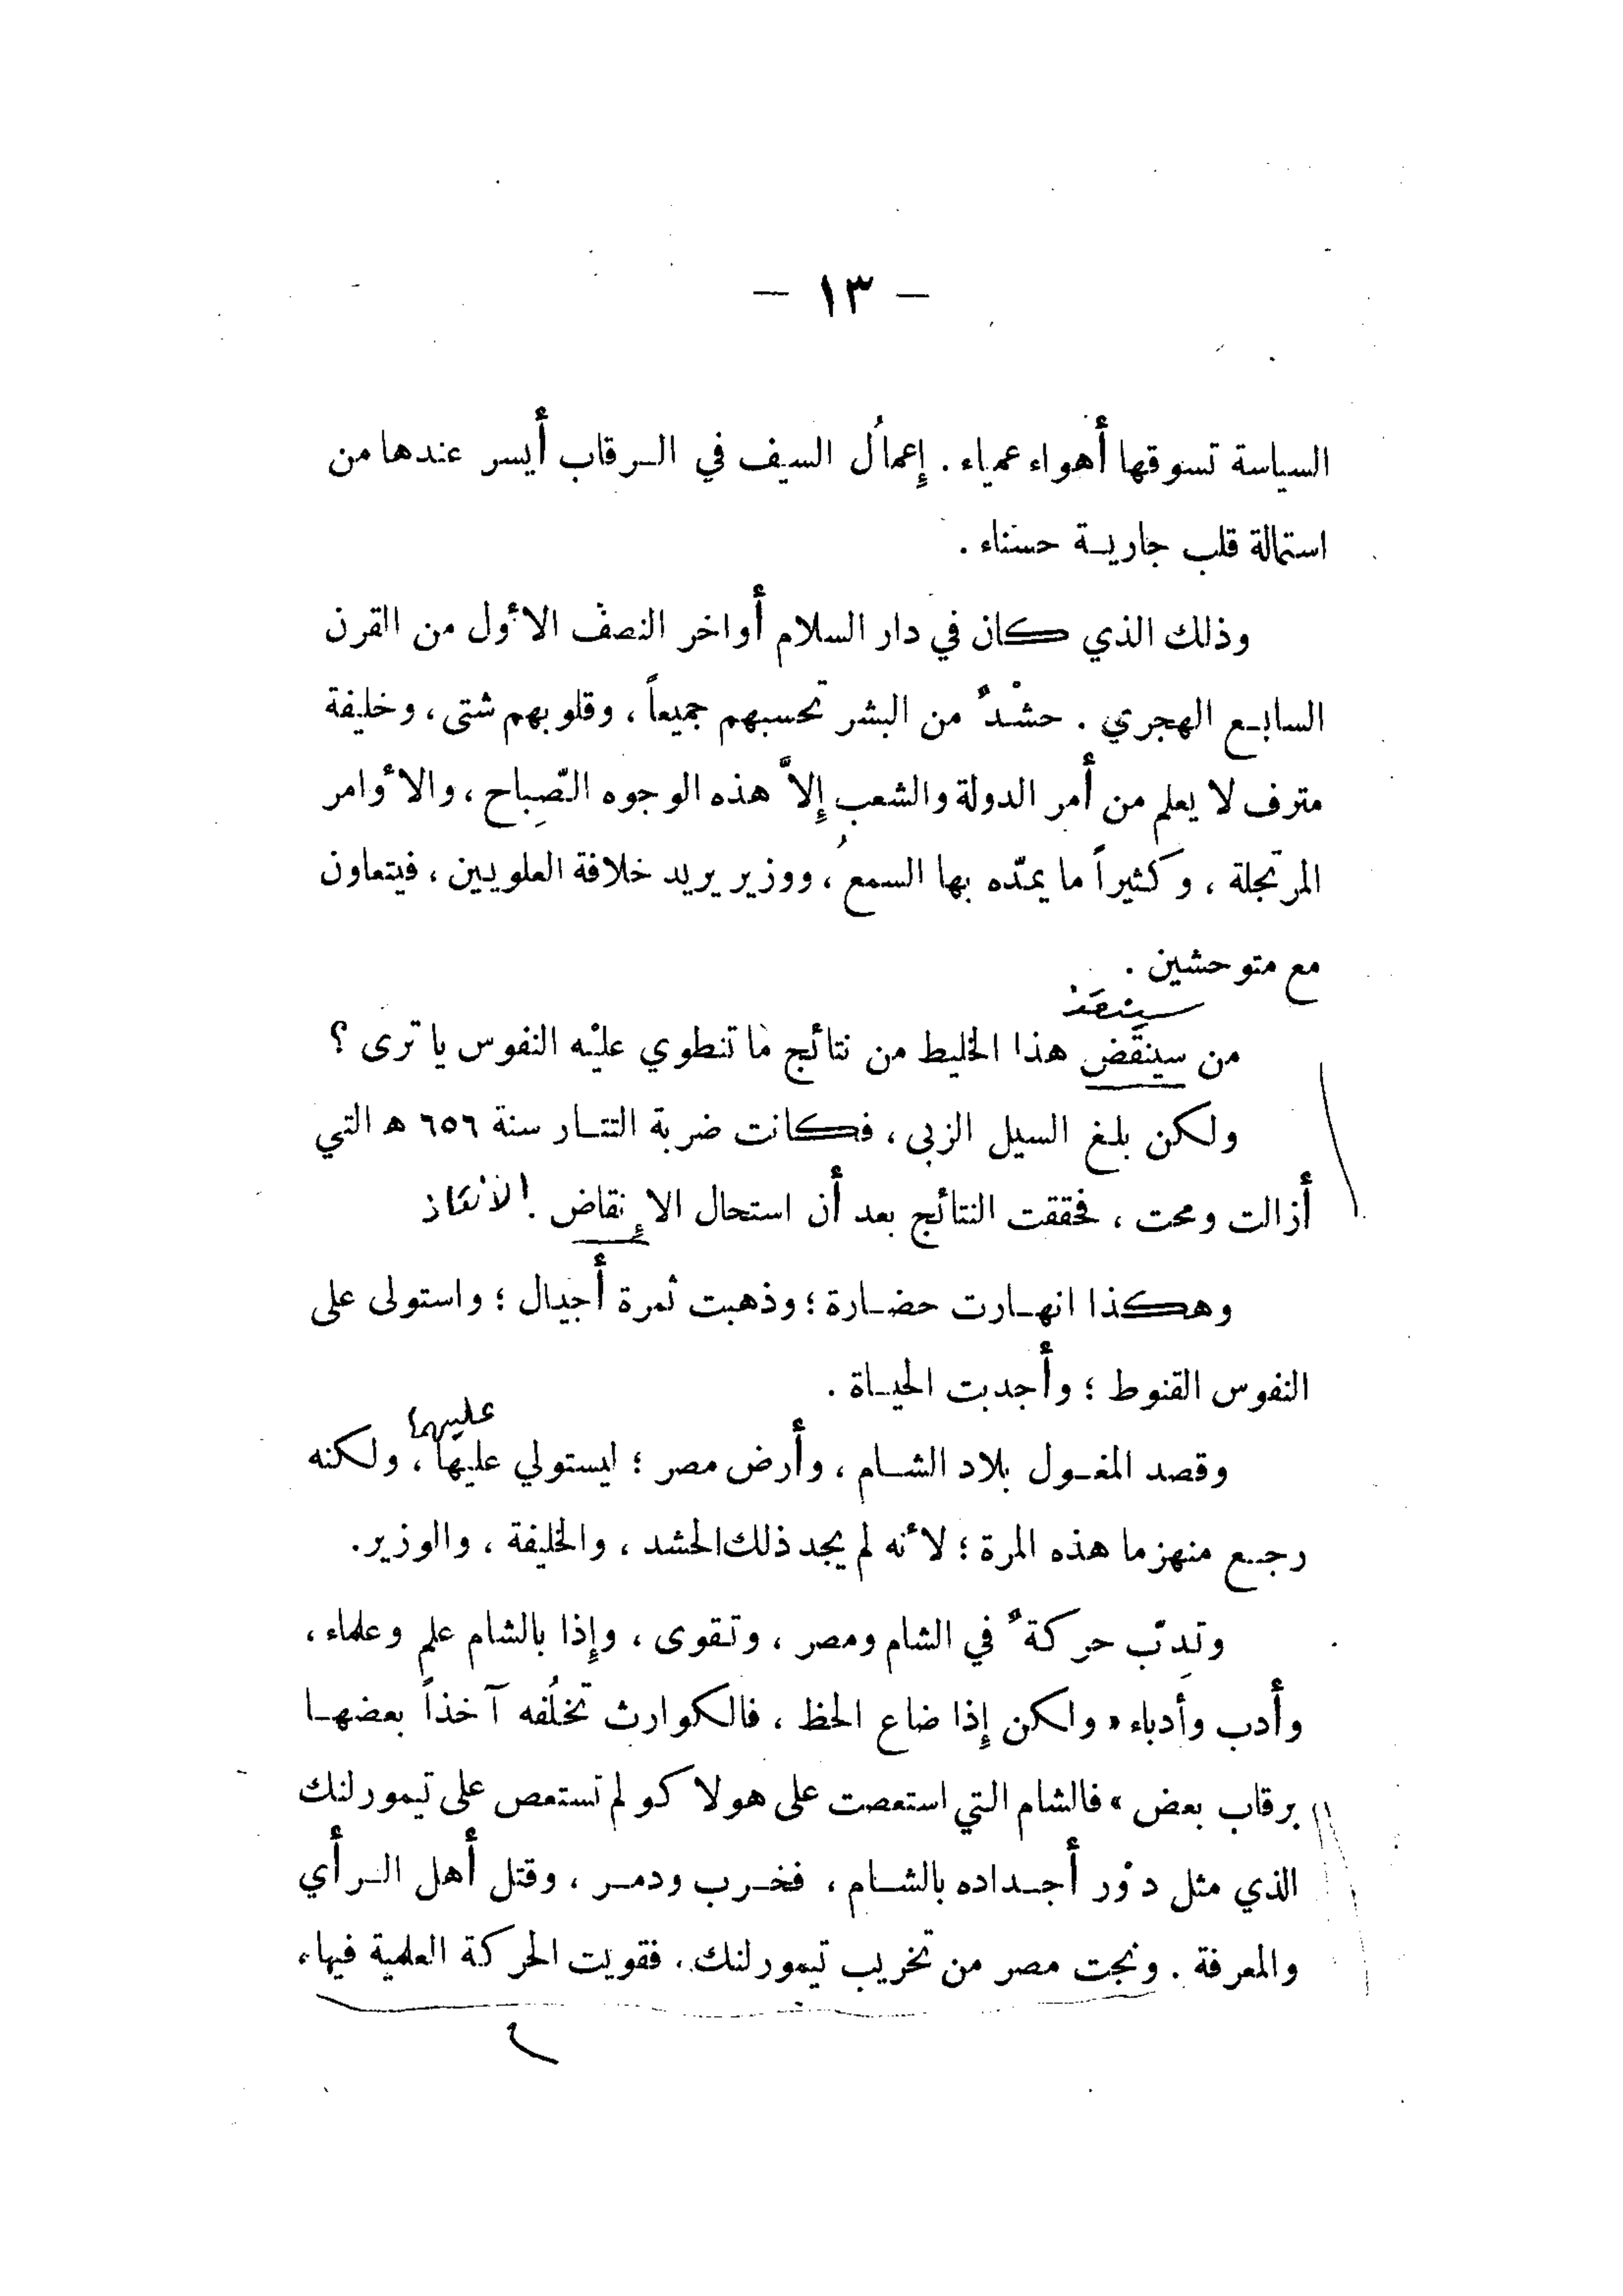 — ١٣ —
السياسة تسوقها أهواء عمياء . إعمالُ السيف في الرقاب أيسر عندها من
استمالة قلب جارية حسناء .
وذلك الذي كان في دار السلام أواخر النصف الأول من القرن
السابع الهجري . حشْدٌ من البشر تحسبهم جميعاً ، وقلوبهم شتى ، وخليفة
مترف لا يعلم من أمر الدولة والشعب إلاَّ هذه الوجوه الصِّباح ، والأوامر
المرتجلة ، وكثيراً ما يمدّه بها السمعُ ، ووزير يريد خلافة العلويين ، فيتعاون
مع متوحشين .
سينقذ
من سينقَض هذا الخليط من نتائج ما تنطوي عليْه النفوس يا ترى ؟
ولكن بلغ السيل الزبى ، فكانت ضربة التتار سنة ٦٥٦ ه التي
أزالت ومحت ، فحققت النتائج بعد أن استحال الإنقاض . الانقاذ
وهكذا انهارت حضارة ؛ وذهبت ثمرة أجيال ؛ واستولى على
النفوس القنوط ؛ وأجدبت الحياة .
عليهما
وقصد المغول بلاد الشام ، وأرض مصر ؛ ليستولي عليها ، ولكنه
رجع منهزما هذه المرة ؛ لأنه لم يجد ذلك الحشد ، والخليفة ، والوزير .
وتدِبّ حركةٌ في الشام ومصر ، وتقوى ، وإذا بالشام علم وعلماء ،
وأدب وأدباء « ولكن إذا ضاع الحظ ، فالكوارث تخلُفه آخذاً بعضها
برقاب بعض » فالشام التي استعصت على هولاكو لم تستعص على تيمورلنك
الذي مثل دوْر أجداده بالشام ، فخرب ودمر ، وقتل أهل الرأي
والمعرفة . ونجت مصر من تخريب تيمورلنك . فقويت الحركة العلمية فيها ،